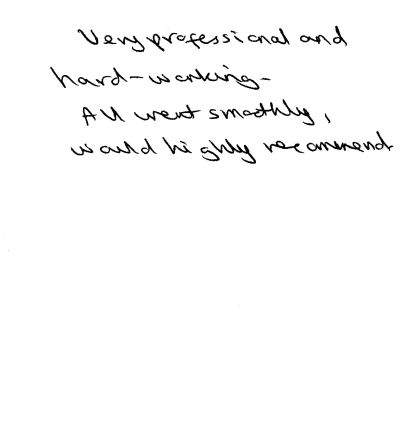 Very professional and
hard-working-
All went smoothly,
would highly recommend